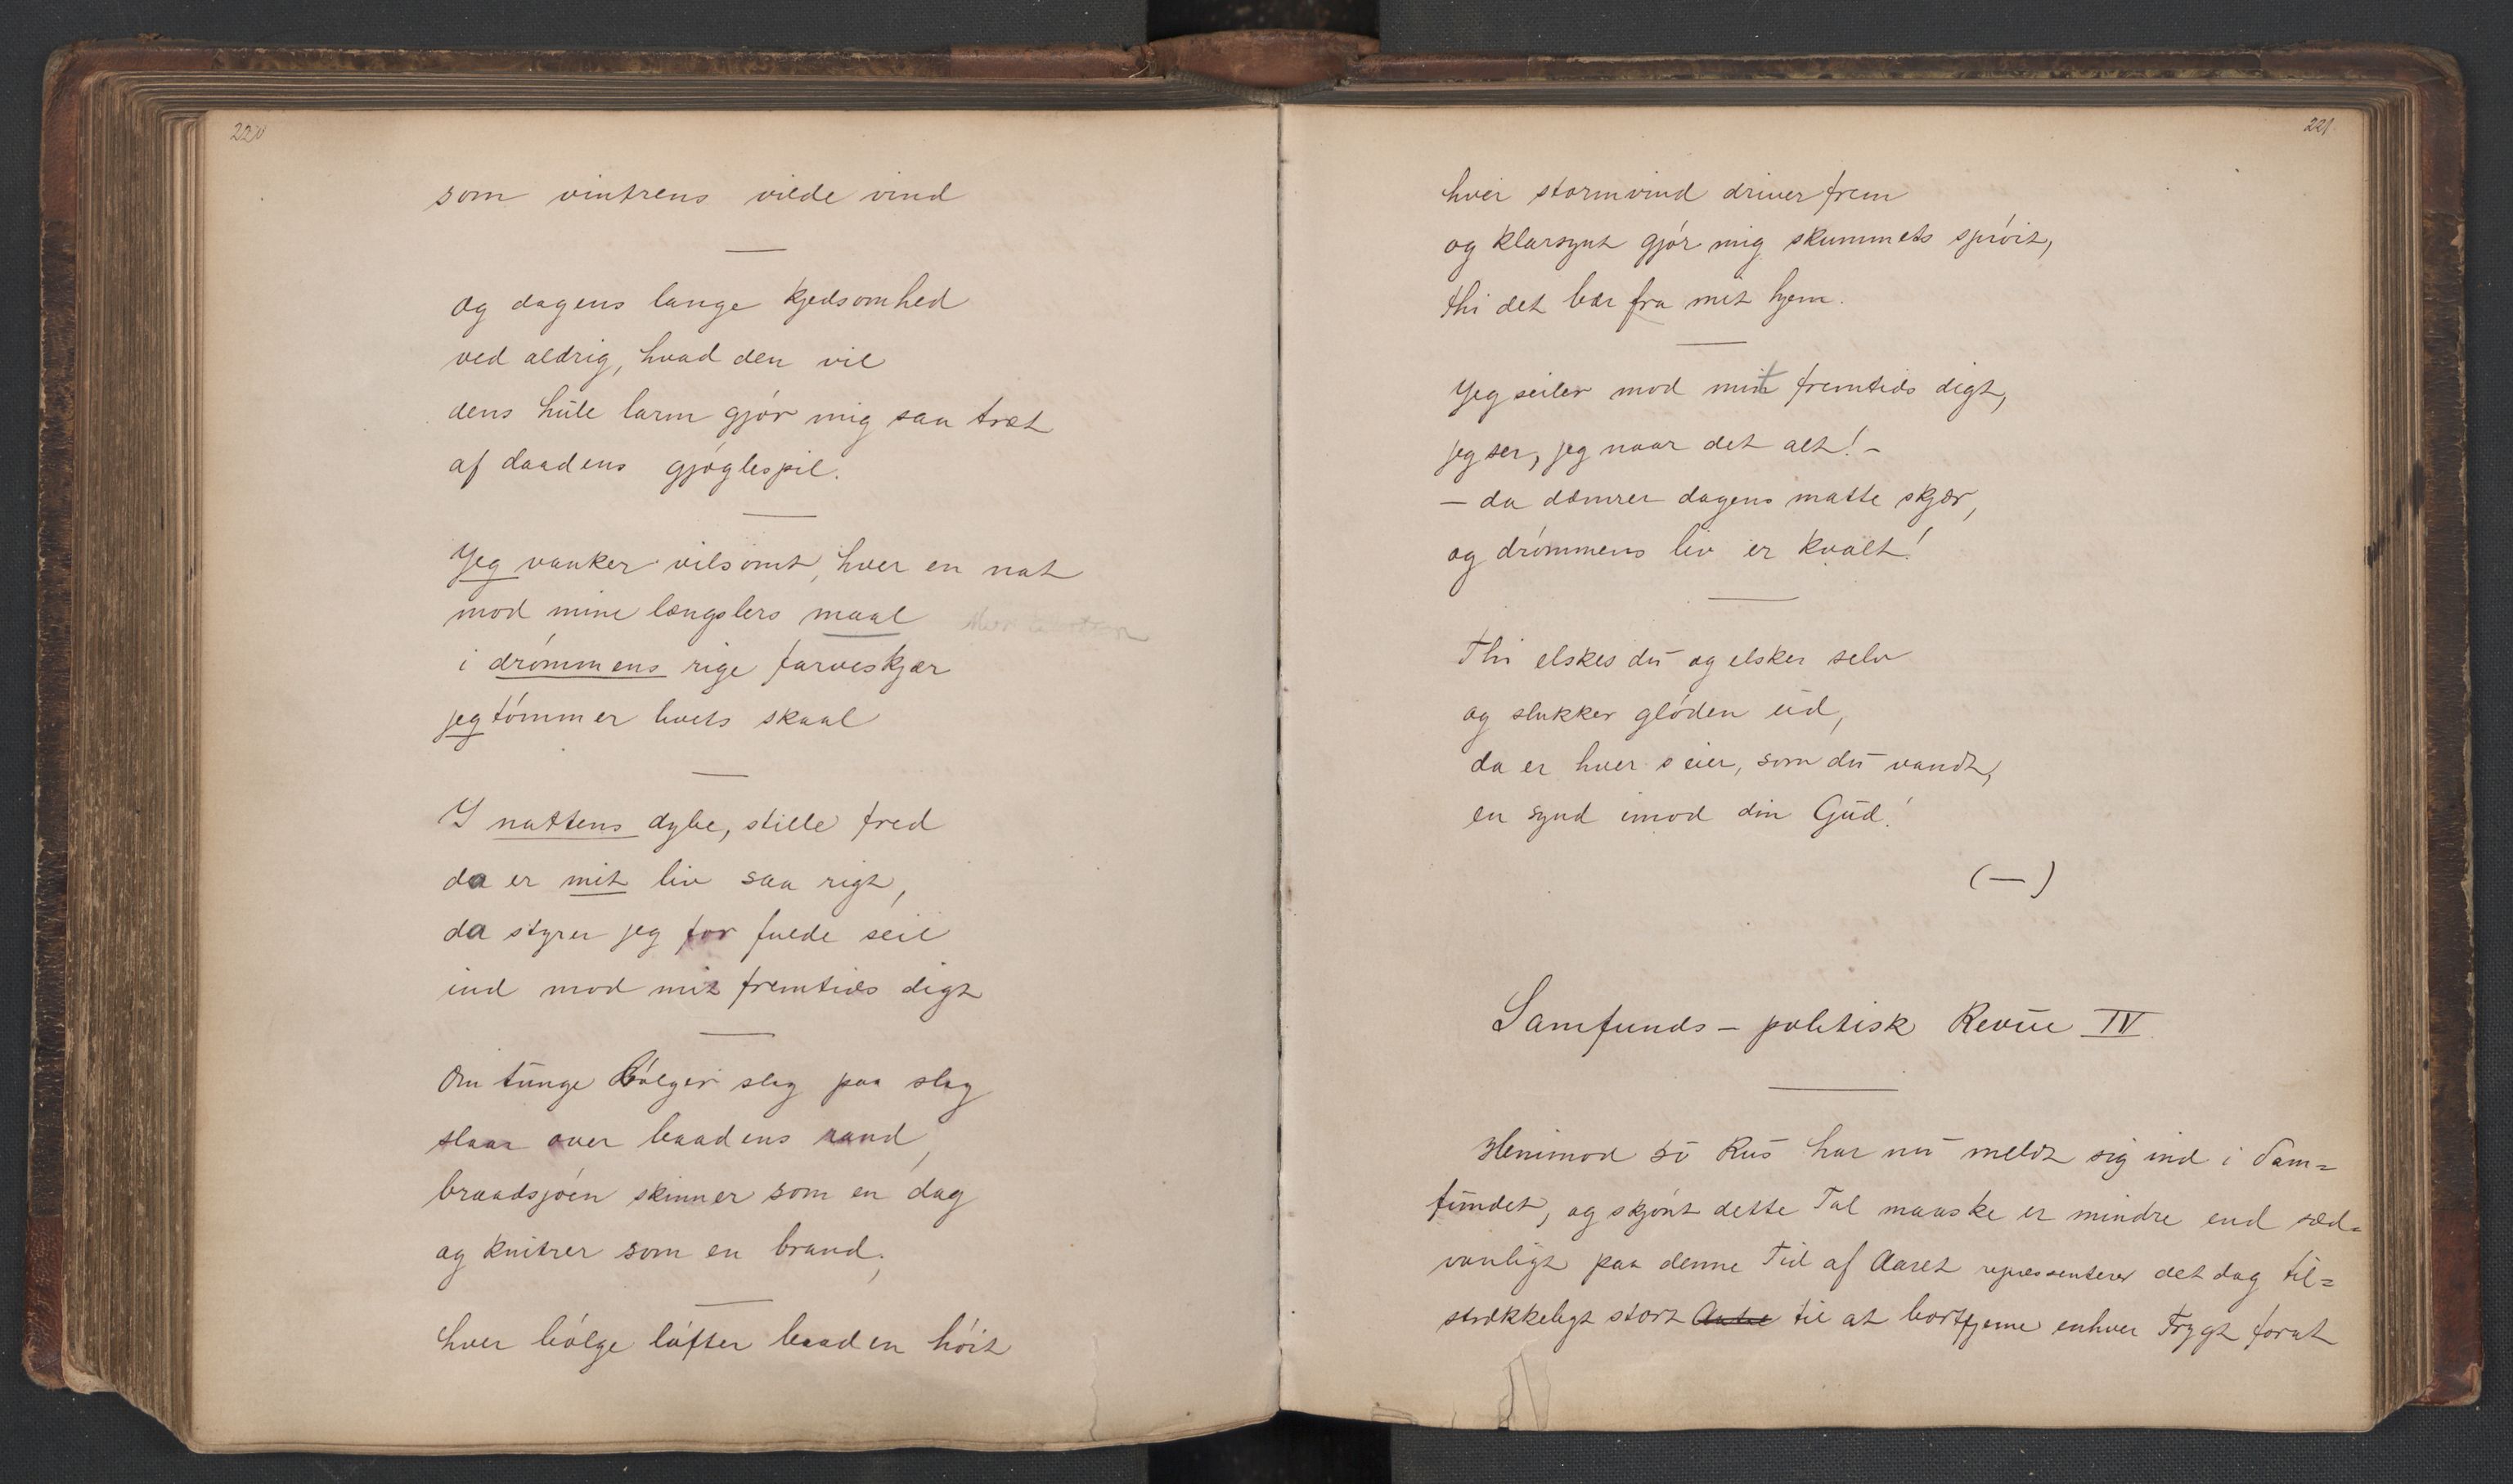 220
som vintrens vilde vind
og dagens lange kjedsomhed
ved aldrig, hvad den vil
dens hule larm gjør mig saa træt
af daadens gjøglespil.
Jeg vanker vilsomt, hver en nat
mod mine længslers maal
i drømmens rige farveskjær
jeg tømmer livets skaal
I nattens dybe, stille fred
da er mit liv saa rigt,
da styrer jeg for fulde seil
ind mod mit fremtids digt
Om tunge Bølger slag paa slag
slaar over baadens rand,
braadsjøen skinner som en dag
og knitrer som en brand;
hver bølge løfter baaden høit
221
hver stormvind driver frem
og klarsynt gjør mig skummets sprøit,
thi det bær fra mit hjem.
Jeg seiler mod mit fremtids digt,
jeg ser, jeg naar det alt! –
– da dæmrer dagens matte skjær,
og drømmens liv er kvalt!
Thi elskes du og elsker selv
og slukker gløden ud,
da er hver seier, som du vandt,
en synd imod din Gud!
(—)
Samfunds – politisk Revue IV
Henimod 50 Rus har nu meldt sig ind i Sam=
fundet, og skjønt dette Tal maaske er mindre end sæd=
vanligt paa denne Tid af Aaret repræssenterer det dog til=
strækkeligt stort til at bortfjerne enhver Frygt forat